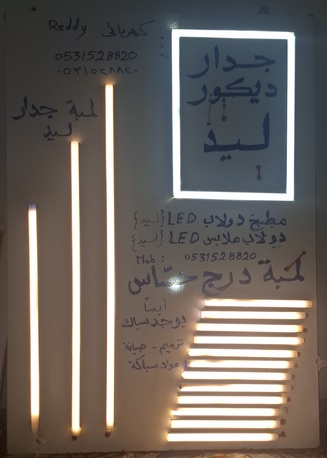 Reddy كهربائي
0531528820
٠٥٣١٥٢٨٨٢٠
لمبة جدار
ليد
جدار
ديكور
ليد
مطبخ دولاب LED {ليد}
دولاب ملابس LED {ليد}
Mob : 0531528820
لمبة درج حساس
أيضاً
يوجد سباك
ترميم - صيانة
مواد سباكة